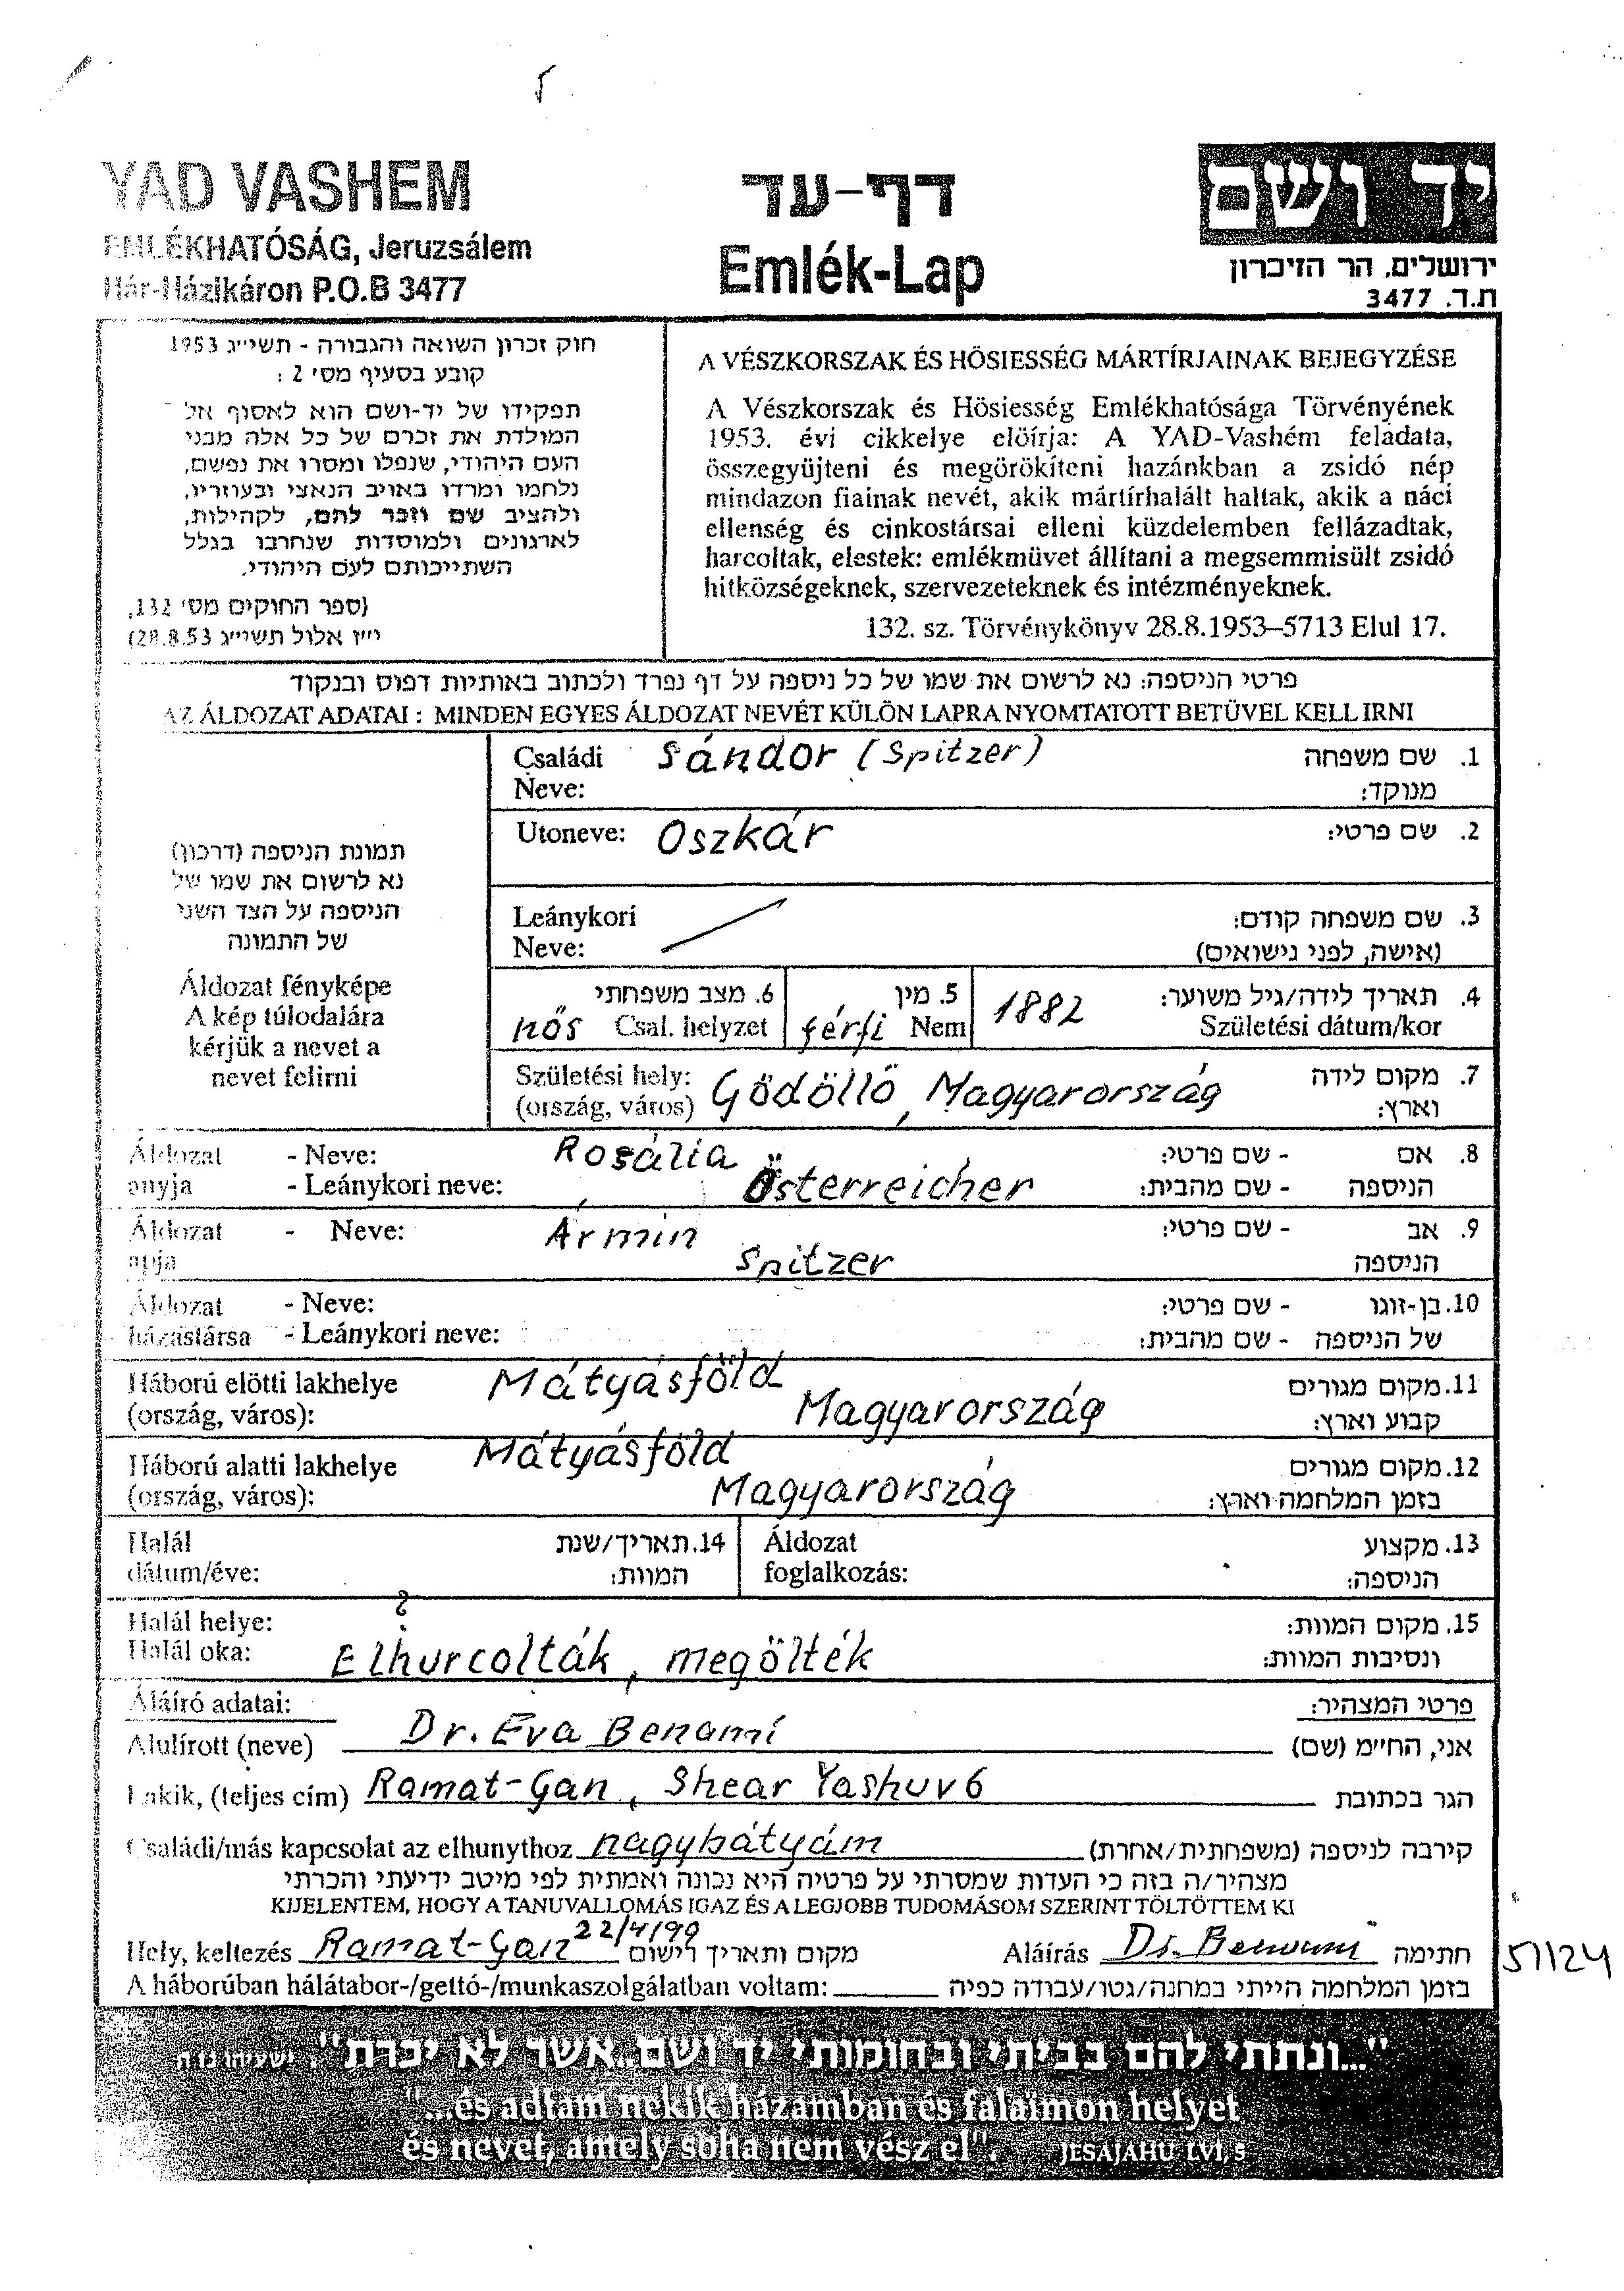 YAD VASHEM
EMLÉKHATÓSÁG, Jeruzsálem
Hár-Házikáron P.O.B 3477
דף-עד
Emlék-Lap
יד ושם
ירושלים, הר הזיכרון
ת.ד. 3477
חוק זכרון השואה והגבורה - תשי״ג 1953
קובע בסעיף מס׳ 2 :
תפקידו של יד-ושם הוא לאסוף אל
המולדת את זכרם של כל אלה מבני
העם היהודי, שנפלו ומסרו את נפשם,
נלחמו ומרדו באויב הנאצי ובעוזריו,
ולהציב שם וזכר להם, לקהילות,
לארגונים ולמוסדות שנחרבו בגלל
השתייכותם לעם היהודי.
(ספר החוקים מס׳ 132,
י״ז אלול תשי״ג 28.8.53)
A VÉSZKORSZAK ÉS HÖSIESSÉG MÁRTÍRJAINAK BEJEGYZÉSE
A Vészkorszak és Hösiesség Emlékhatósága Törvényének
1953. évi cikkelye elöírja: A YAD-Vashém feladata,
összegyüjteni és megörökíteni hazánkban a zsidó nép
mindazon fiainak nevét, akik mártírhalált haltak, akik a náci
ellenség és cinkostársai elleni küzdelemben fellázadtak,
harcoltak, elestek: emlékmüvet állítani a megsemmisült zsidó
hitközségeknek, szervezeteknek és intézményeknek.
132. sz. Törvénykönyv 28.8.1953–5713 Elul 17.
פרטי הניספה: נא לרשום את שמו של כל ניספה על דף נפרד ולכתוב באותיות דפוס ובנקוד
AZ ÁLDOZAT ADATAI : MINDEN EGYES ÁLDOZAT NEVÉT KÜLÖN LAPRA NYOMTATOTT BETÜVEL KELL IRNI
תמונת הניספה (דרכון)
נא לרשום את שמו של
הניספה על הצד השני
של התמונה
Áldozat fényképe
A kép túlodalára
kérjük a nevet a
nevet felirni
Családi Neve: Sándor (Spitzer) 1. שם משפחה מנוקד:
Utoneve: Oszkár 2. שם פרטי:
Leánykori Neve: 3. שם משפחה קודם: (אישה, לפני נישואים)
nős Csal. helyzet 6. מצב משפחתי férfi Nem 5. מין 1882 4. תאריך לידה/גיל משוער: Születési dátum/kor
Születési hely: (ország, város) Gödöllő, Magyarország 7. מקום לידה וארץ:
Áldozat anyja - Neve: Rosália 8. אם - שם פרטי:
- Leánykori neve: Österreicher הניספה - שם מהבית:
Áldozat apja - Neve: Ármin 9. אב - שם פרטי:
Spitzer הניספה
Áldozat - Neve: 10. בן-זוגו - שם פרטי:
házastársa - Leánykori neve: של הניספה - שם מהבית:
Háború elötti lakhelye Mátyásföld 11. מקום מגורים
(ország, város): Magyarország קבוע וארץ:
Háború alatti lakhelye Mátyásföld 12. מקום מגורים
(ország, város): Magyarország בזמן המלחמה וארץ:
Halál dátum/éve: 14. תאריך/שנת המוות: Áldozat foglalkozás: 13. מקצוע הניספה:
Halál helye: ? 15. מקום המוות:
Halál oka: Elhurcolták, megölték ונסיבות המוות:
Aláíró adatai: פרטי המצהיר:
Alulírott (neve) Dr. Éva Benami אני, החי״מ (שם)
Lakik, (teljes cím) Ramat-Gan, Shear Yashuv 6 הגר בכתובת
Családi/más kapcsolat az elhunythoz nagybátyám קירבה לניספה (משפחתית/אחרת)
מצהיר/ה בזה כי העדות שמסרתי על פרטיה היא נכונה ואמתית לפי מיטב ידיעתי והכרתי
KIJELENTEM, HOGY A TANUVALLOMÁS IGAZ ÉS A LEGJOBB TUDOMÁSOM SZERINT TÖLTÖTTEM KI
Hely, keltezés Ramat-Gan 22/4/99 מקום ותאריך רישום Aláírás Dr. Benami חתימה
51124
A háborúban hálátabor-/gettó-/munkaszolgálatban voltam: בזמן המלחמה הייתי במחנה/גטו/עבודה כפיה
"...ונתתי להם בביתי ובחומותי יד ושם..אשר לא יכרת". ישעיהו נו ה
"...és adtam nekik házamban és falaimon helyet
és nevet, amely soha nem vész el". JESAJAHU LVI, 5